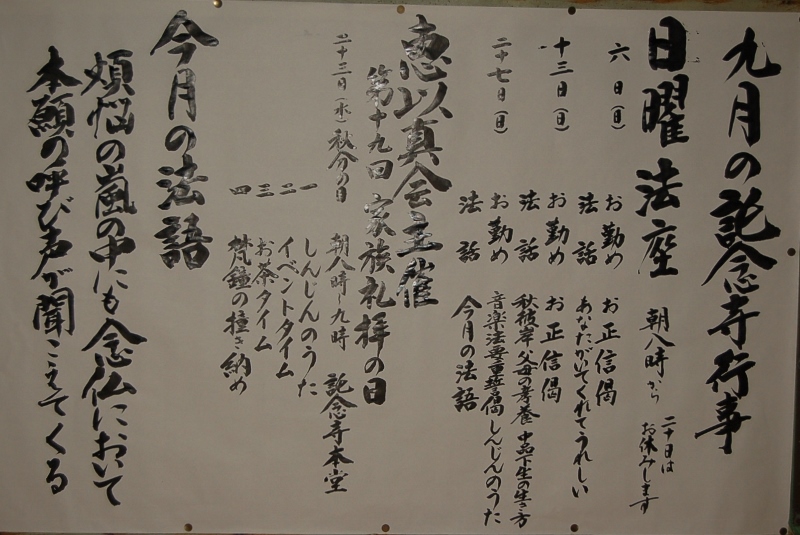 九月の記念寺行事
日曜法座 朝八時から 二十日はお休みします
六日(日) お勤め お正信偈
法話 あなたがいてくれてうれしい
十三日(日) お勤め お正信偈
法話 秋彼岸 父母の孝養 中品下生の生き方
二十七日(日) お勤め 音楽法要重誓偈 しんじんのうた
法話 今月の法語
恵以真会主催
第十九回 家族礼拝の日
二十三日(水)秋分の日 朝八時〜九時 記念寺本堂
一 しんじんのうた
二 イベントタイム
三 お茶タイム
四 梵鐘の撞き納め
今月の法語
煩悩の嵐の中にも念仏において
本願の呼び声が聞こえてくる